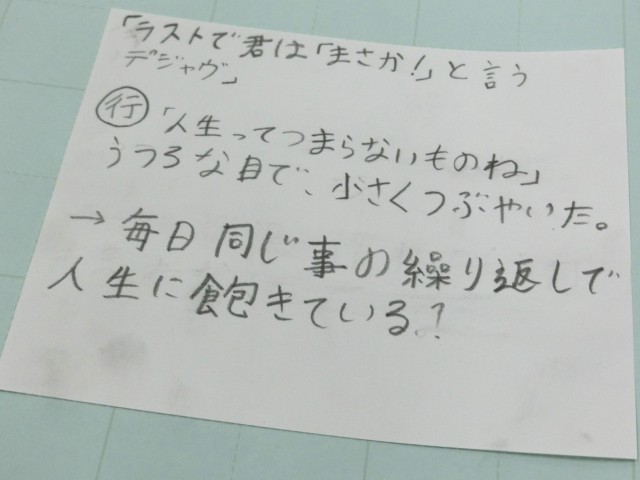 「ラストで君は「まさか!」と言う
デジャヴ」
行 「人生ってつまらないものね」
うつろな目で、小さくつぶやいた。
→ 毎日同じ事の繰り返しで
人生に飽きている?